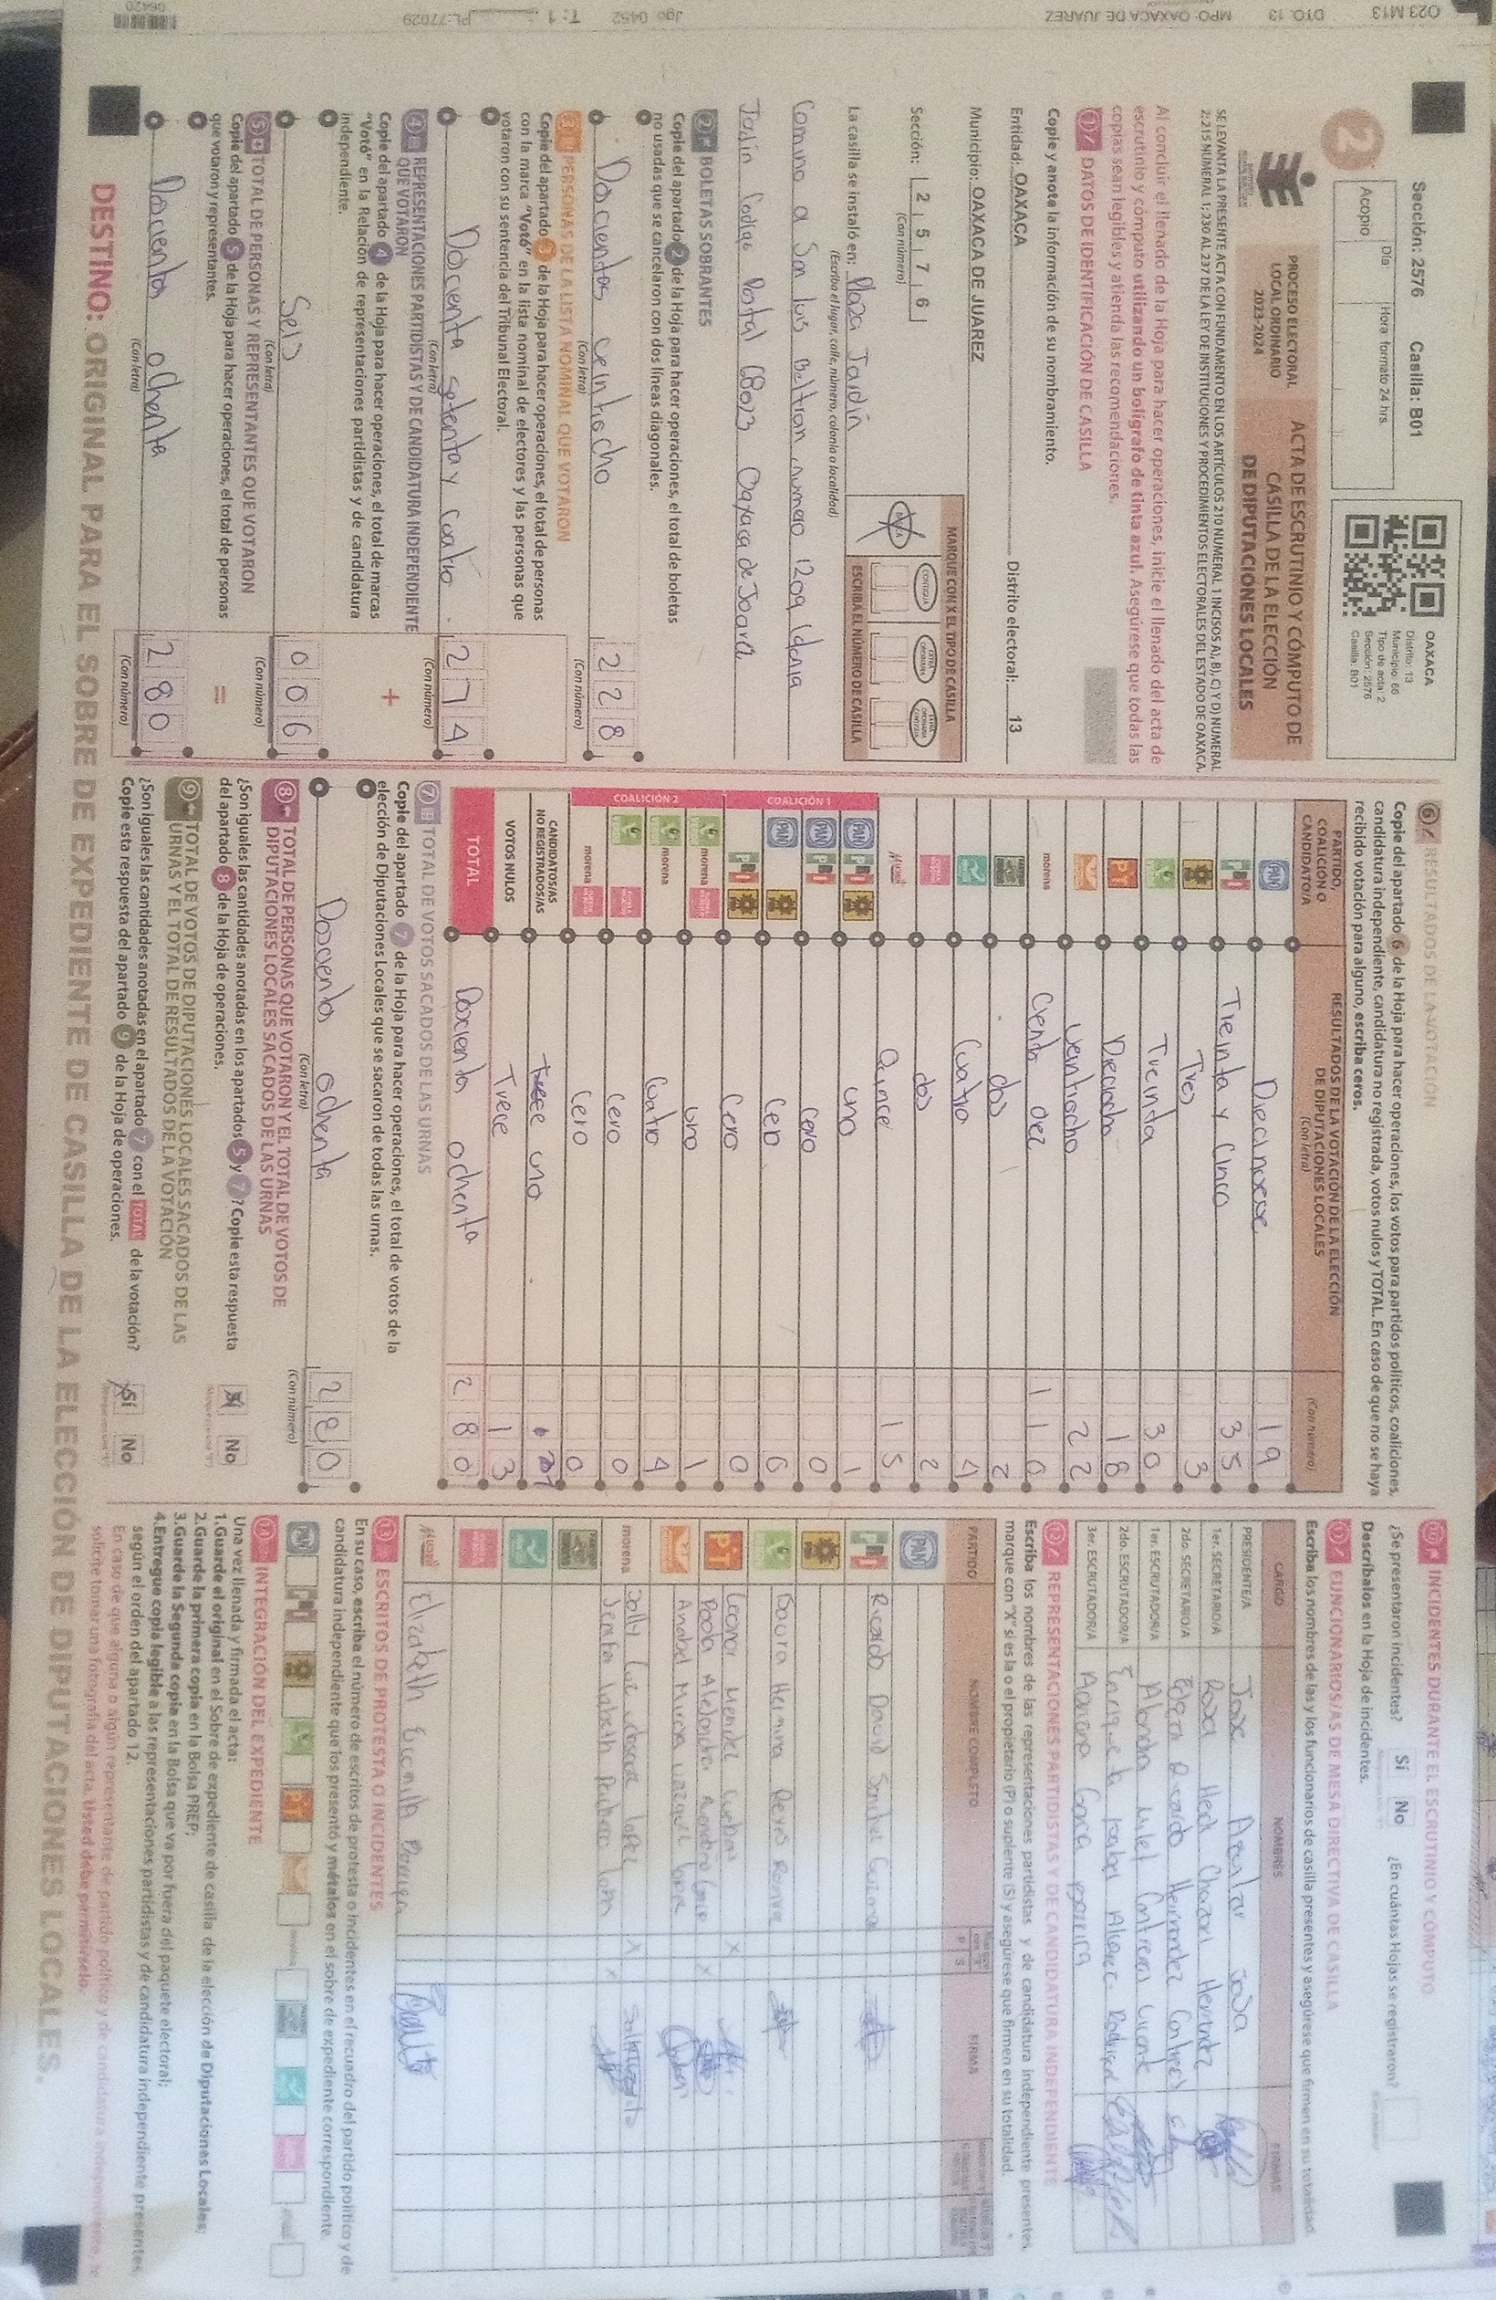 Sección: 2576 Casilla: B01
Día Hora formato 24 hrs.
Acopio
OAXACA
Distrito: 13
Municipio: 66
Tipo de acta: 2
Sección: 2576
Casilla: B01
2
PROCESO ELECTORAL
LOCAL ORDINARIO
2023-2024
ACTA DE ESCRUTINIO Y CÓMPUTO DE
CASILLA DE LA ELECCIÓN
DE DIPUTACIONES LOCALES
SE LEVANTA LA PRESENTE ACTA CON FUNDAMENTO EN LOS ARTÍCULOS 210 NUMERAL 1 INCISOS A), B), C) Y D) NUMERAL
2; 215 NUMERAL 1; 230 AL 237 DE LA LEY DE INSTITUCIONES Y PROCEDIMIENTOS ELECTORALES DEL ESTADO DE OAXACA.
Al concluir el llenado de la Hoja para hacer operaciones, inicie el llenado del acta de
escrutinio y cómputo utilizando un bolígrafo de tinta azul. Asegúrese que todas las
copias sean legibles y atienda las recomendaciones.
1 DATOS DE IDENTIFICACIÓN DE CASILLA
Copie y anote la información de su nombramiento.
Entidad: OAXACA Distrito electoral: 13
Municipio: OAXACA DE JUAREZ
Sección: 2 5 7 6
(Con número)
MARQUE CON X EL TIPO DE CASILLA
ESCRIBA EL NÚMERO DE CASILLA
La casilla se instaló en: Plaza Jardín
(Escriba el lugar, calle, número, colonia o localidad)
Camino a San Luis Beltran numero 1209 Colonia
Jardín Codigo Postal 68023 Oaxaca de Juarez
2 BOLETAS SOBRANTES
Copie del apartado 2 de la Hoja para hacer operaciones, el total de boletas
no usadas que se cancelaron con dos líneas diagonales.
Doscientos veintiocho 2 2 8
(Con letra) (Con número)
3 PERSONAS DE LA LISTA NOMINAL QUE VOTARON
Copie del apartado 3 de la Hoja para hacer operaciones, el total de personas
con la marca "Votó" en la lista nominal de electores y las personas que
votaron con su sentencia del Tribunal Electoral.
Docienta setenta y cuatro 2 7 4
(Con letra) (Con número)
4 REPRESENTACIONES PARTIDISTAS Y DE CANDIDATURA INDEPENDIENTE
QUE VOTARON
Copie del apartado 4 de la Hoja para hacer operaciones, el total de marcas
"Votó" en la Relación de representaciones partidistas y de candidatura
independiente.
+
Seis 0 0 6
(Con letra) (Con número)
5 TOTAL DE PERSONAS Y REPRESENTANTES QUE VOTARON
Copie del apartado 5 de la Hoja para hacer operaciones, el total de personas
que votaron y representantes.
=
Docientos ochenta 2 8 0
(Con letra) (Con número)
6 RESULTADOS DE LA VOTACIÓN
Copie del apartado 6 de la Hoja para hacer operaciones, los votos para partidos políticos, coaliciones,
candidatura independiente, candidatura no registrada, votos nulos y TOTAL. En caso de que no se haya
recibido votación para alguno, escriba ceros.
PARTIDO,
COALICIÓN O
CANDIDATO/A
RESULTADOS DE LA VOTACIÓN DE LA ELECCIÓN
DE DIPUTACIONES LOCALES
(Con letra) (Con número)
PAN Diecinueve 1 9
PRI Treinta y Cinco 3 5
Tres 3
Treinta 3 0
PT Dieciocho 1 8
Veintiocho 2 2
morena Ciento diez 1 1 0
dos 2
Cuatro 4
dos 2
Quince 1 5
COALICIÓN 1
PAN PRI uno 1
PAN PRI Cero 0
PAN Cero 0
PRI Cero 0
COALICIÓN 2
morena uno 1
morena Cuatro 4
Cero 0
morena Cero 0
CANDIDATOS/AS
NO REGISTRADOS/AS
Trece uno
VOTOS NULOS Trece 1 3
TOTAL Doscienta ochenta 2 8 0
7 TOTAL DE VOTOS SACADOS DE LAS URNAS
Copie del apartado 7 de la Hoja para hacer operaciones, el total de votos de la
elección de Diputaciones Locales que se sacaron de todas las urnas.
Doscientos ochenta 2 8 0
(Con letra) (Con número)
8 TOTAL DE PERSONAS QUE VOTARON Y EL TOTAL DE VOTOS DE
DIPUTACIONES LOCALES SACADOS DE LAS URNAS
¿Son iguales las cantidades anotadas en los apartados 5 y 7? Copie esta respuesta
del apartado 8 de la Hoja de operaciones.
Sí No
9 TOTAL DE VOTOS DE DIPUTACIONES LOCALES SACADOS DE LAS
URNAS Y EL TOTAL DE RESULTADOS DE LA VOTACIÓN
¿Son iguales las cantidades anotadas en el apartado 7 con el TOTAL de la votación?
Copie esta respuesta del apartado 9 de la Hoja de operaciones.
Sí No
10 INCIDENTES DURANTE EL ESCRUTINIO Y CÓMPUTO
¿Se presentaron incidentes? Sí No ¿En cuántas Hojas se registraron?
Descríbalos en la Hoja de incidentes.
11 FUNCIONARIOS/AS DE MESA DIRECTIVA DE CASILLA
Escriba los nombres de las y los funcionarios de casilla presentes y asegúrese que firmen en su totalidad
CARGO NOMBRES FIRMAS
PRESIDENTE/A Jose Aguilar Sosa
1er. SECRETARIO/A Rosa Heidi Chazari Hernandez
2do. SECRETARIO/A Edgar Ricardo Hernandez
1er. ESCRUTADOR/A
2do. ESCRUTADOR/A Enrique
3er. ESCRUTADOR/A Adriana
12 REPRESENTACIONES PARTIDISTAS Y DE CANDIDATURA INDEPENDIENTE
Escriba los nombres de las representaciones partidistas y de candidatura independiente presentes,
marque con "X" si es la o el propietario (P) o suplente (S) y asegúrese que firmen en su totalidad.
PARTIDO NOMBRE COMPLETO FIRMA
PAN
PRI Ricardo David Sanchez Guzman
Laura Herminia Reyes
Leonor Mendez
PT Paola Alejandra
Anabel
morena Sally
Elizabeth Escamilla
13 ESCRITOS DE PROTESTA O INCIDENTES
En su caso, escriba el número de escritos de protesta o incidentes en el recuadro del partido político y de
candidatura independiente que los presentó y métalos en el sobre de expediente correspondiente
14 INTEGRACIÓN DEL EXPEDIENTE
Una vez llenada y firmada el acta:
1.Guarde el original en el Sobre de expediente de casilla de la elección de Diputaciones Locales;
2.Guarde la primera copia en la Bolsa PREP;
3.Guarde la Segunda copia en la Bolsa que va por fuera del paquete electoral;
4.Entregue copia legible a las representaciones partidistas y de candidatura independiente presentes,
según el orden del apartado 12.
En caso de que alguna o algún representante de partido político y de candidatura independiente, le
solicite tomar una fotografía del acta, usted debe permitírselo.
DESTINO: ORIGINAL PARA EL SOBRE DE EXPEDIENTE DE CASILLA DE LA ELECCIÓN DE DIPUTACIONES LOCALES.
O23 M13 DTO. 13 MPO. OAXACA DE JUAREZ Jgo 0452 T: 1 PL:77029 06420